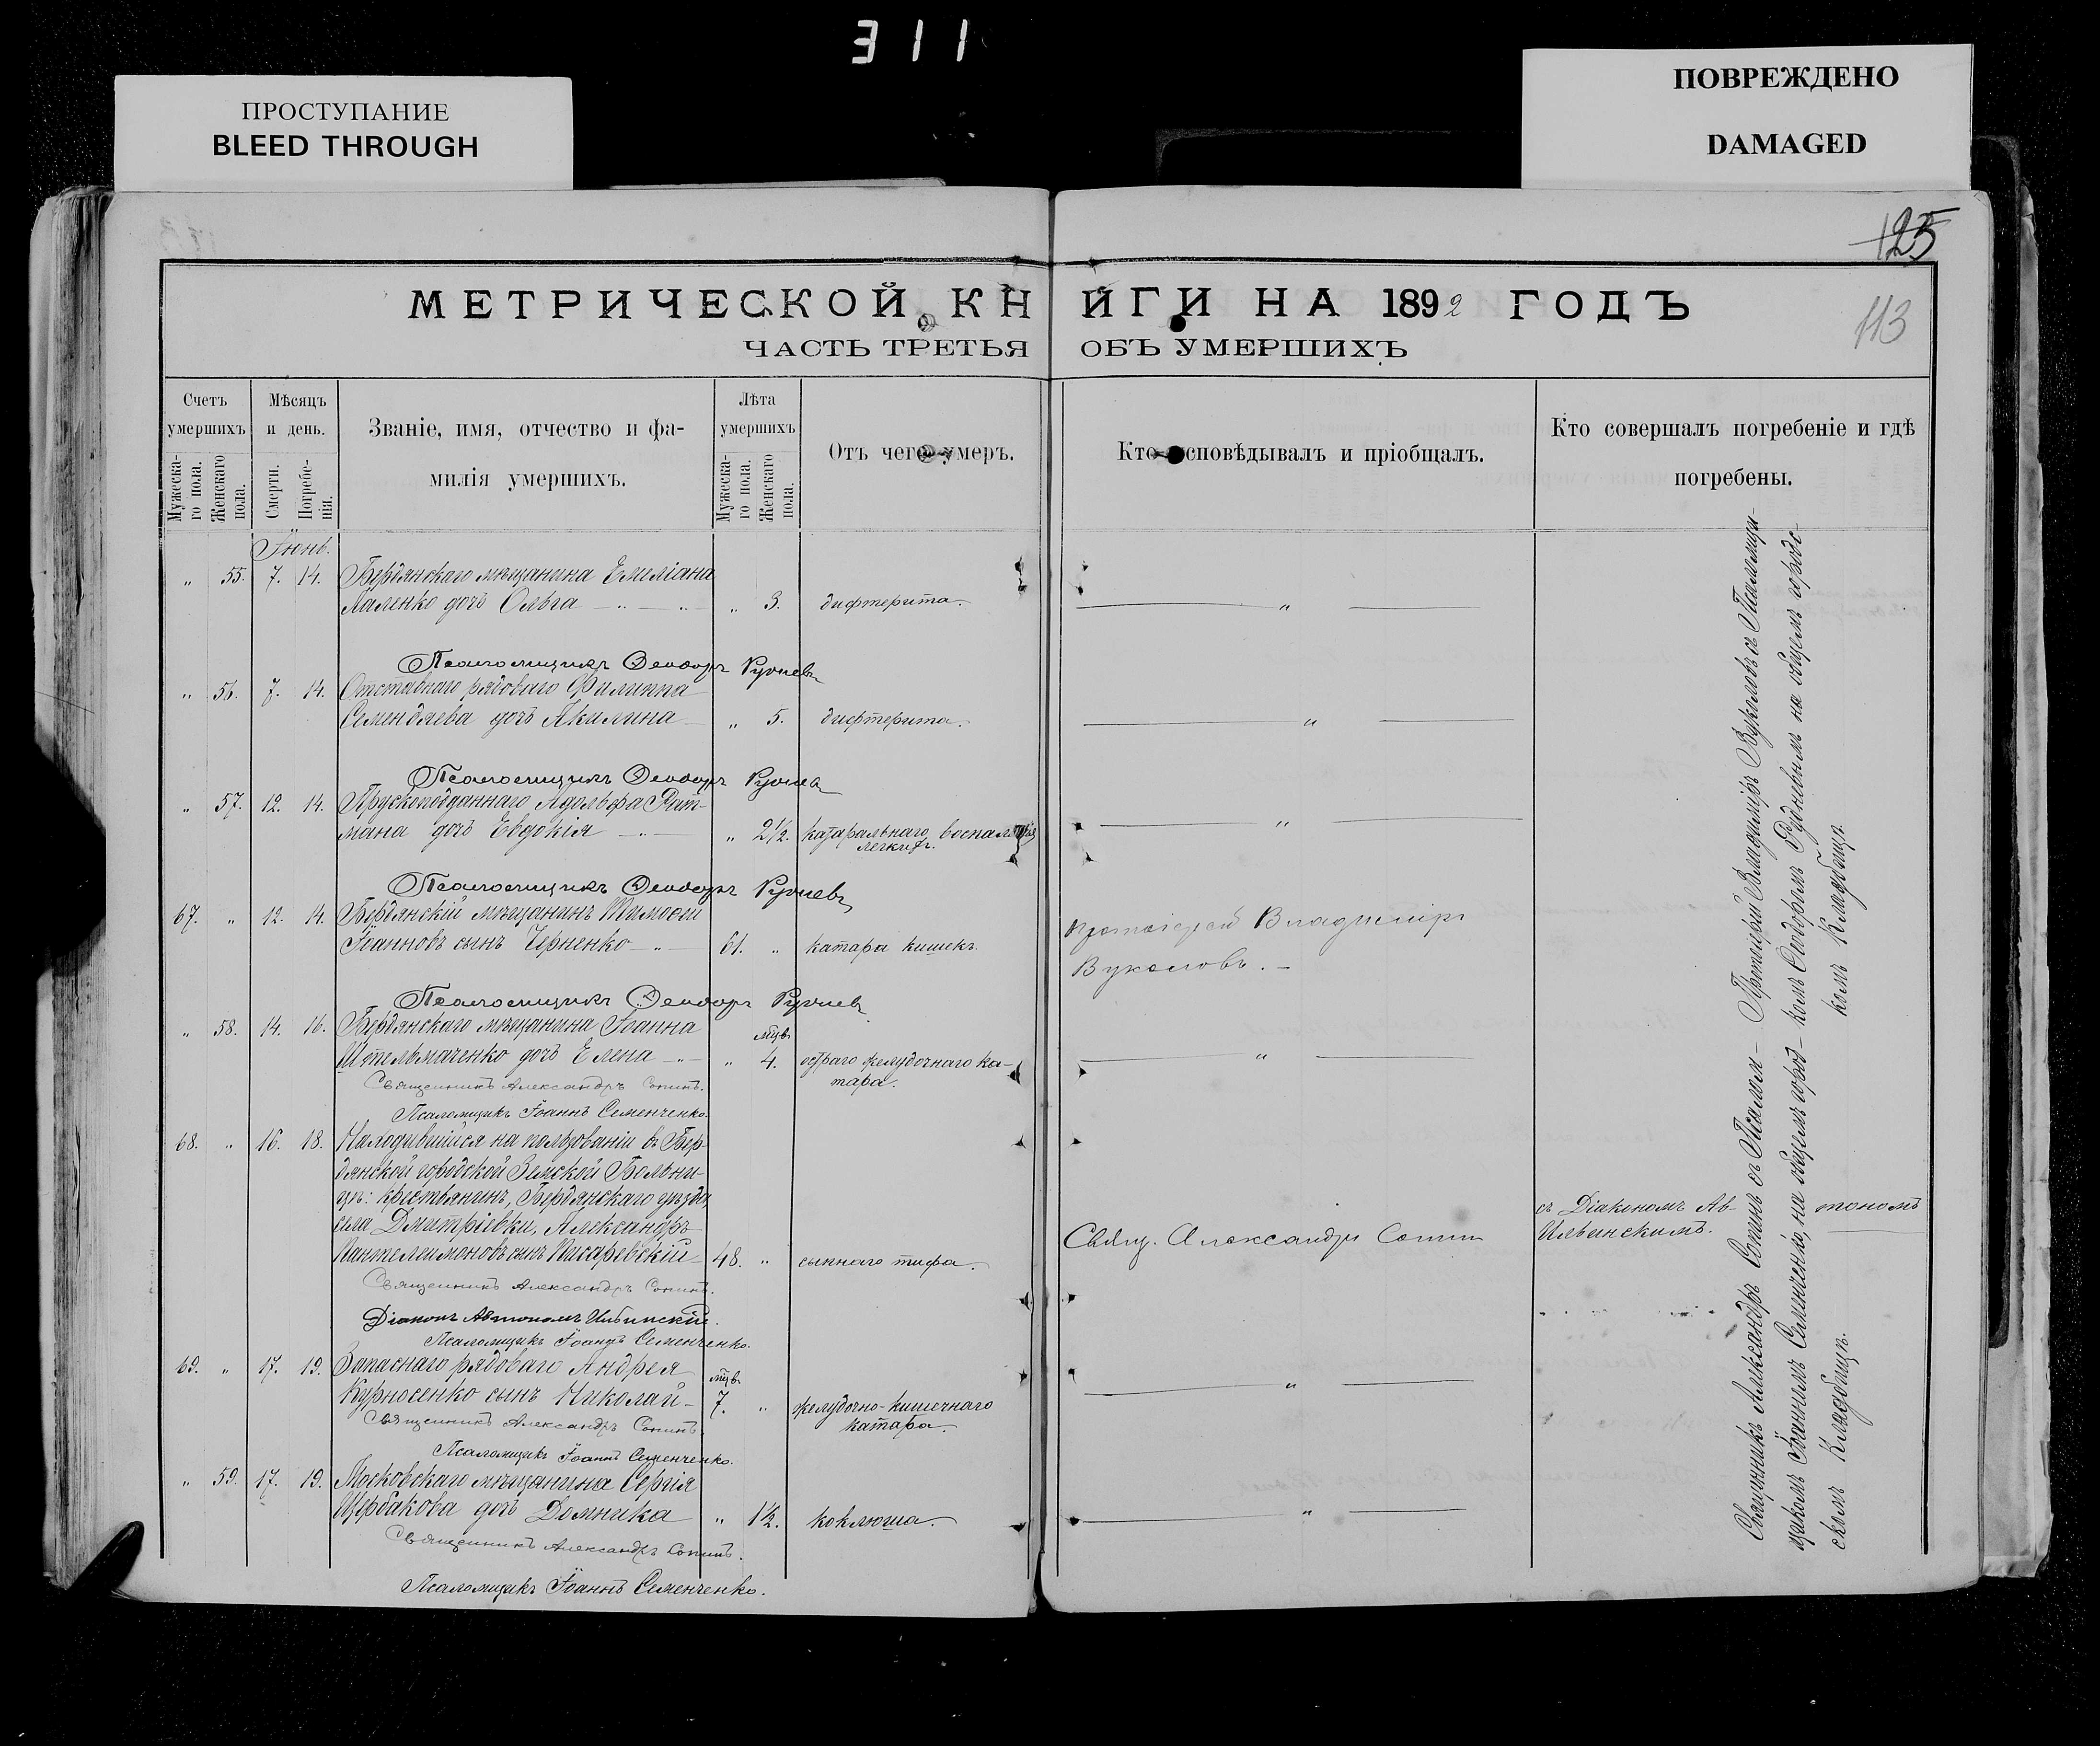 311
ПРОСТУПАНИЕ
BLEED THROUGH
ПОВРЕЖДЕНО
DAMAGED
125
113
МЕТРИЧЕСКОЙ КНИГИ НА 1892 ГОДЪ
ЧАСТЬ ТРЕТЬЯ ОБЪ УМЕРШИХЪ
Счетъ умершихъ
Мужескаго пола.
Женскаго пола.
Мѣсяцъ и день.
Смерти.
Погребенія.
Званіе, имя, отчество и фамилія умершихъ.
Лѣта умершихъ
Мужескаго пола.
Женскаго пола.
Отъ чего умеръ.
Кто исповѣдывалъ и пріобщалъ.
Кто совершалъ погребеніе и гдѣ
погребены.
Іюнь.
„ 55. 7. 14. Бердянскаго мѣщанина Емиліана
Лаленко дочь Ольга — „ — „ 3. дифтерита. — „ —
Псаломщикъ Ѳеодоръ Руднев
„ 56. 7. 14. Отставнаго рядоваго Филиппа
Семендяева дочь Акилина „ 5. дифтерита. — „ —
Псаломщикъ Ѳеодоръ Руднев
„ 57. 12. 14. Прускоподданнаго Адольфа Рит-
мана дочь Евдокія — „ — „ 2½. катаральнаго воспаленія
легкихъ. — „ —
Псаломщикъ Ѳеодоръ Рудневъ
67. „ 12. 14. Бердянскій мѣщанинъ Тимоѳей
Іоанновъ сынъ Черненко — „ — 61. „ катара кишекъ
Протоіерей Владиміръ
Вуколовъ. —
Псаломщикъ Ѳеодоръ Руднев
„ 58. 14. 16. Бердянскаго мѣщанина Іоанна мцв.
Штельмаченко дочь Елена — „ — „ 4. остраго желудочнаго ка-
тара. — „ —
Священникъ Александръ Сопинъ.
Псаломщикъ Іоаннъ Семенченко.
68. „ 16. 18. Находившійся на пользованіи въ Бер-
дянской городской Земской Больни-
цѣ: крестьянинъ, Бердянскаго уѣзда,
села Дмитріевки, Александръ
Пантелеимоновъ сынъ Писаревскій 48. „ сыпнаго тифа.
Свящ. Александръ Сопинъ
съ Діакономъ Ав- тономъ
Ильинскимъ.
Священникъ Александръ Сопинъ.
Діаконъ Автономъ Ильинскій.
Псаломщикъ Іоаннъ Семенченко.
69. „ 17. 19. Запаснаго рядоваго Андрея мцв.
Курносенко сынъ Николай — 7. „ желудочно-кишечнаго
катара. — „ —
Священникъ Александръ Сопинъ
Псаломщикъ Іоаннъ Семенченко.
„ 59. 17. 19. Московскаго мѣщанина Сергія
Щербакова дочь Домника „ 1½. коклюша. — „ —
Священникъ Александръ Сопинъ.
Псаломщикъ Іоаннъ Семенченко.
Священникъ Александръ Сопинъ съ Псалом- Протоіерей Владиміръ Вуколовъ съ Псаломщи-
щикомъ Іоанномъ Семенченко, на общемъ город- комъ Ѳеодоромъ Рудневымъ на общемъ городс-
скомъ Кладбищѣ. комъ Кладбищѣ.